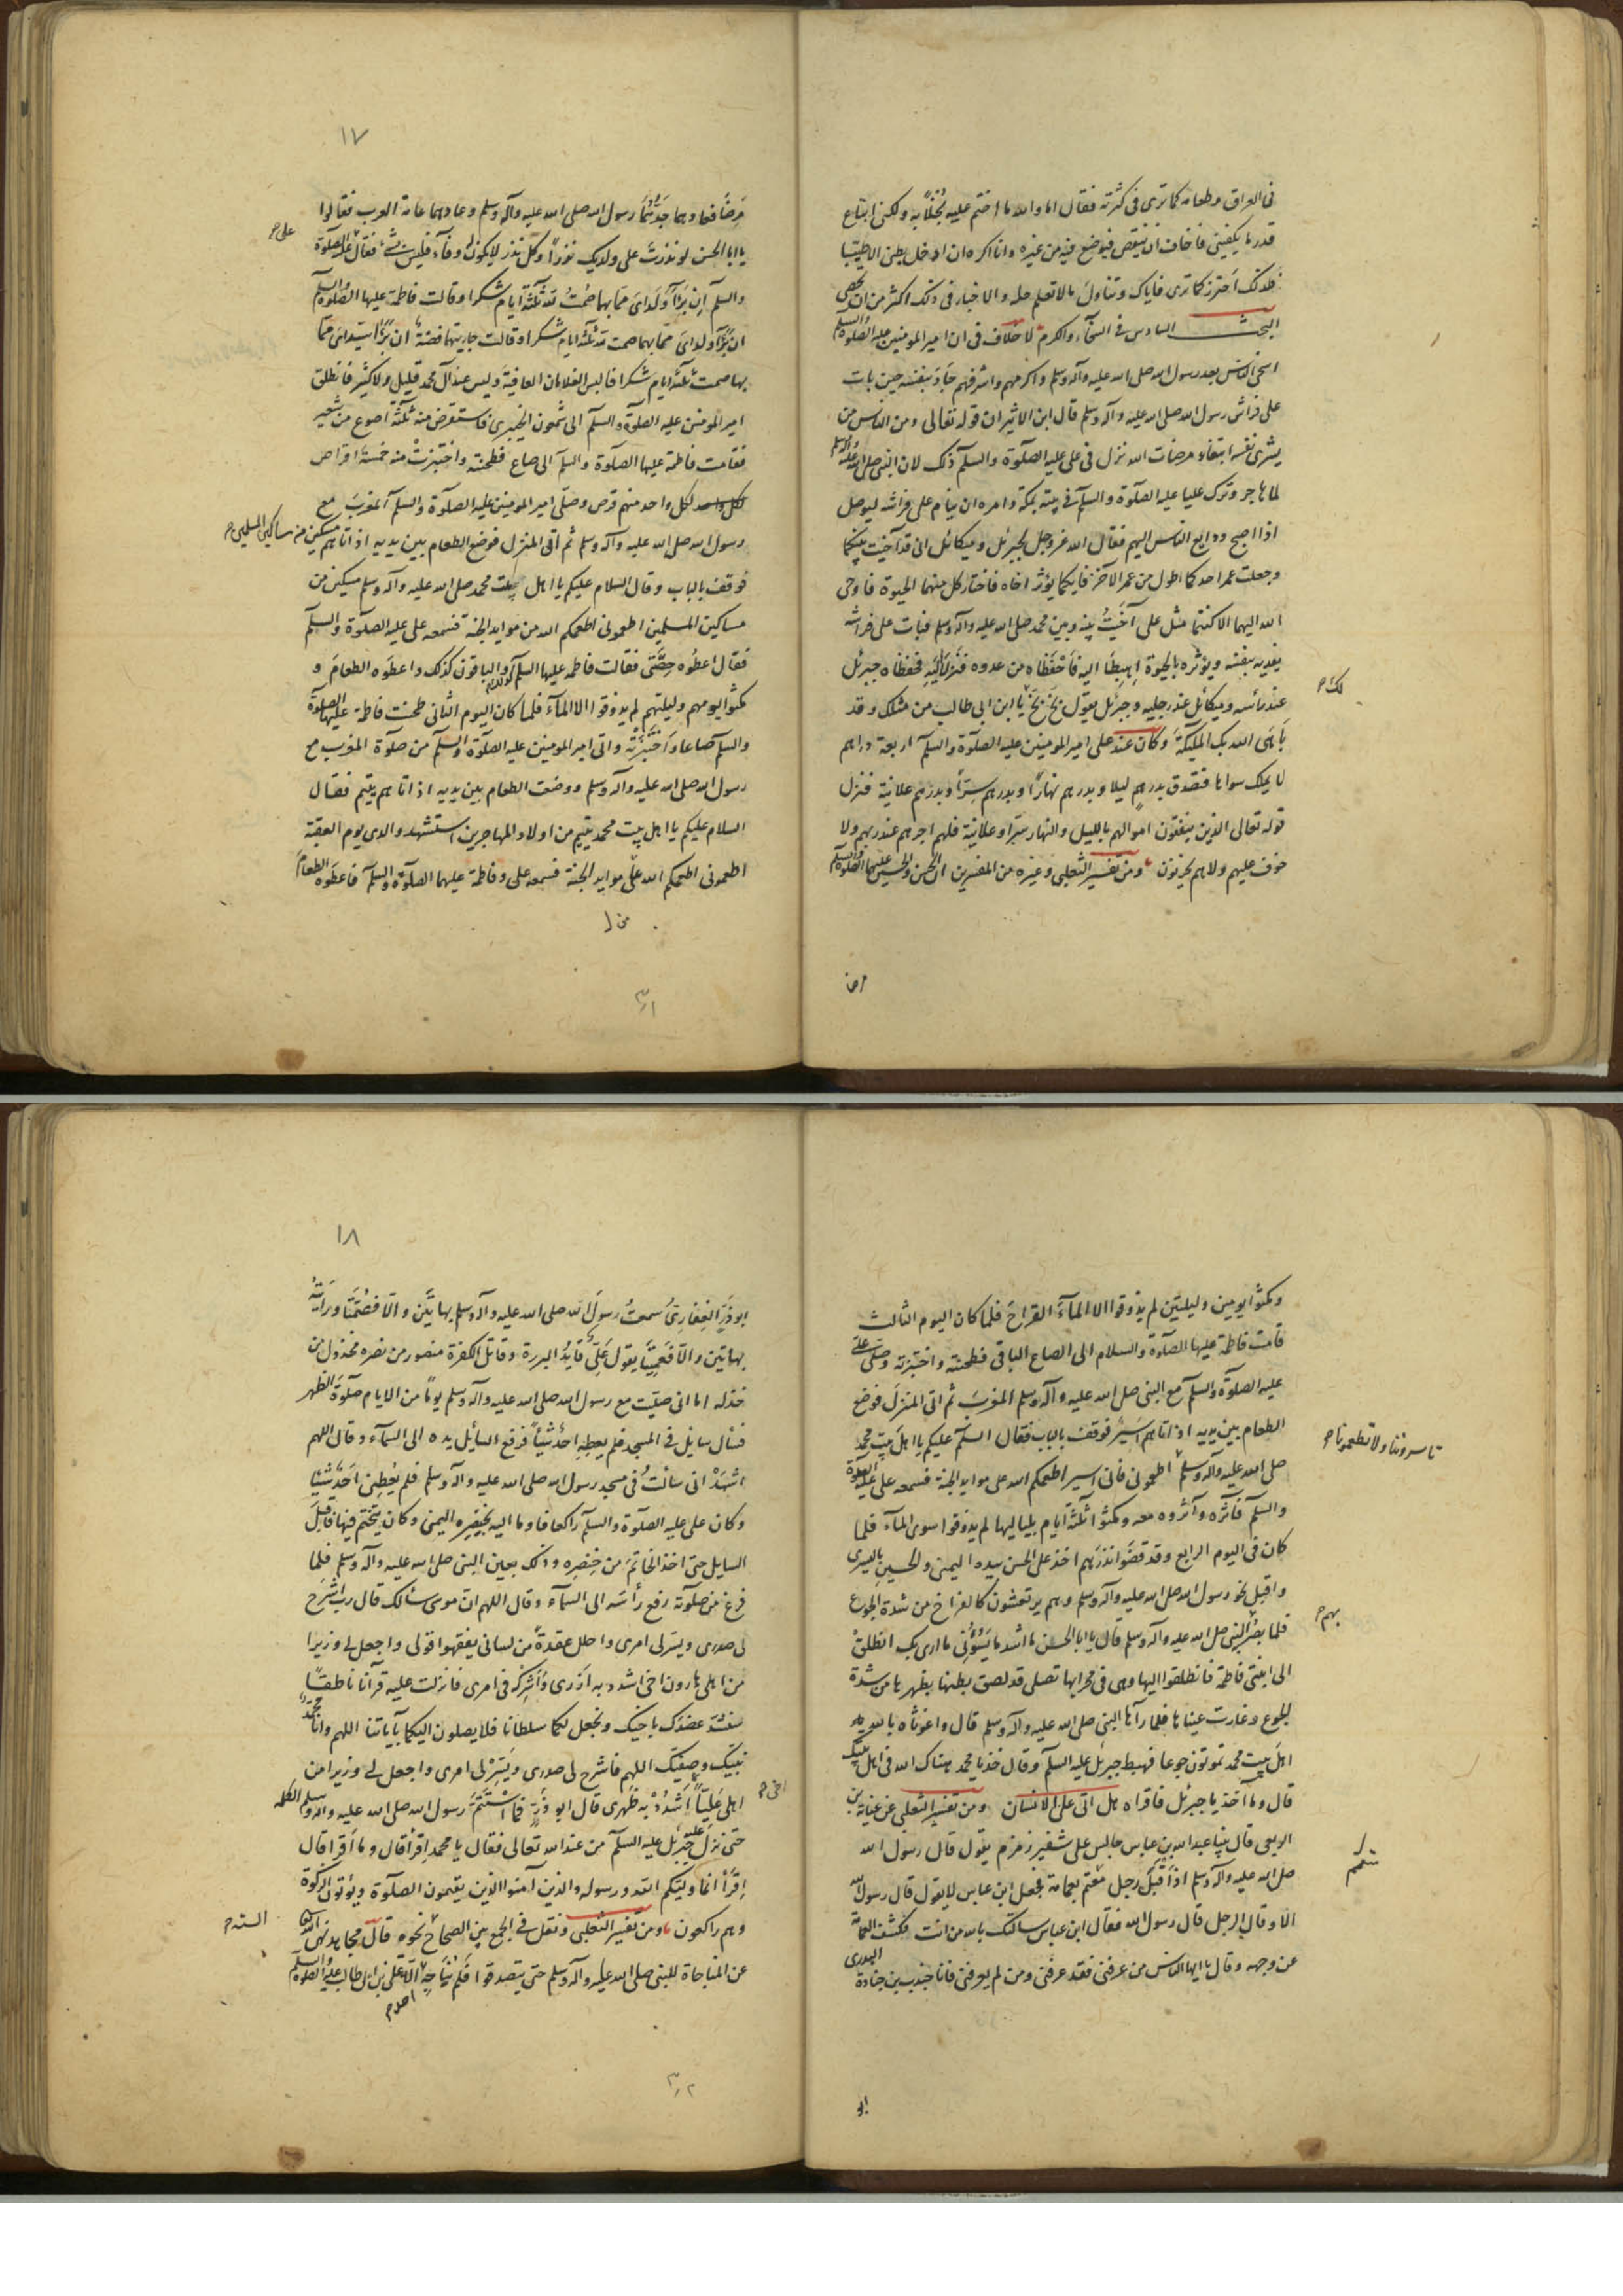 فى العراق وطعامه كما ترى فى كثرته فقال اما والله ما اختم عليه بُخلًا به ولكنى ابتاع
قدر ما يكفينى فاخاف ان ينقص فيوضع فيه من غيره وانا اكره ان ادخل بطنى الا طيبا
فلذلك احترز كما ترى فاياك وتناول ما لا تعلم حله والاخبار فى ذلك اكثر من ان تحصى
البحث السادس فى السخآء والكرم لا خلاف فى ان امير المومنين عليه الصلوة والسلم
اسخى الناس بعد رسول الله صلى الله عليه وآله وسلم واكرمهم واشرفهم جَادَ بنفسه حين بات
على فراش رسول الله صلى الله عليه وآله وسلم قال ابن الاثير ان قوله تعالى ومن الناس من
يشرى نفسه ابتغاء مرضات الله نزل فى على عليه الصلوة والسلم ذلك لان النبى صلى الله عليه وآله وسلم
لما هاجر وترك عليا عليه الصلوة والسلم فى بيته بمكة وامره ان ينام على فراشه ليوصل
اذا اصبح ودايع الناس اليهم فقال الله عز وجل لجبرئل وميكائل انى قد آخيت بينكما
وجعلت عمر احدكما اطول من عمر الآخر فايكما يؤثر اخاه فاختار كل منهما الحيوة فاوحى
الله اليهما الا كنتما مثل على آخَيتُ بينه وبين محمد صلى الله عليه وآله وسلم فبات على فراشه
يفديه بنفسه ويؤثره بالحيوة اِهبِطَا اليه فَاحْفَظَاه من عدوه فَنَزَلَا اِلَيهِ فحفظاه جبرئل
عند رأسه وميكائل عند رجليه وجبرئل يقول بَخٍ بَخٍ يا ابن ابى طالب من مثلك وقد
لك م
بَاهَى الله بك المليكةَ وكان عند على امير المومنين عليه الصلوة والسلم اربعة دراهم
لا يملك سواها فتصدق بدرهمٍ ليلا وبدرهم نهارًا وبدرهم سِرّاً وبدرهم علانية فنزل
قوله تعالى الذين ينفقون اموالهم بالليل والنهار سرّا وعلانية فلهم اجرهم عند ربهم ولا
خوف عليهم ولا هم يحزنون ومن تفسير الثعلبى وغيره من المفسرين ان الحسن والحسين عليهما الصلوة والسلم
مرضا
١٧
مَرِضَا فعادهما جَدُّهُمَا رسول الله صلى الله عليه وآله وسلم وعادهما عامة العرب فقالوا
يا ابا الحسن لو نذرتَ على ولديك نذرًا وكل نذر لا يكون له وفآء فليس بشئ فقال على عليه الصلوة
على م
والسلم اِن بَرَأَ وَلَدَاىَ مما بهما صُمْتُ لله ثلثة ايام شكرا وقالت فاطمة عليها الصلوة والسلم
ان بَرَأَ ولداىَ مما بهما صمت لله ثلثة ايام شكرا وقالت جاريتها فضة ان بَرَأَ سَيّداىَ مما
بهما صمت ثلثة ايام شكرا فالبس الغلامان العافية وليس عند آل محمد قليل ولا كثير فانطلق
امير المومنين عليه الصلوة والسلم الى شمعون الخيبرى فاستقرض منه ثلثة اصوع من شعير
فقامت فاطمة عليها الصلوة والسلم الى صاع فطحنته واختبزتْ منه خمسةَ اقراص
لكل واحد لكل واحد منهم قرص وصلّى امير المومنين عليه الصلوة والسلم المغربَ مع
رسول الله صلى الله عليه وآله وسلم ثم اتى المنزل فوضع الطعام بين يديه اذ اتاهم مسكين من مساكين المسلمين م
فوقف بالباب وقال السلام عليكم يا اهل بيت محمد صلى الله عليه وآله وسلم مسكين من
مساكين المسلمين اطعمونى اطعمكم الله من موايد الجنة فسمعه على عليه الصلوة والسلم
فقال اعطُوه حِصَّتى فقالت فاطمة عليها السلم والباقون كذلك واعطَوه الطعامَ و
مكثوا يومهم وليلتهم لم يذوقوا الا المآءَ فلما كان اليوم الثانى طحنت فاطمة عليها الصلوة
والسلم صاعا وَاخْتَبَزَتْه واتى امير المومنين عليه الصلوة والسلم من صلوة المغرب مع
رسول الله صلى الله عليه وآله وسلم ووضعت الطعام بين يديه اذ اتاهم يتيم فقال
السلام عليكم يا اهل بيت محمد يتيم من اولاد المهاجرين استشهد والدى يوم العقبة
اطعمونى اطعمكم الله على موايد الجنة فسمعه على وفاطمة عليهما الصلوة والسلم فاعطَوه الطعامَ
من ل
٣١
ومكثوا يومين وليلتين لم يذوقوا الا المآءَ القراحَ فلما كان اليوم الثالث
قامت فاطمة عليها الصلوة والسلام الى الصاع الباقى فطحنته واختبزته وصلّى على
عليه الصلوة والسلم مع النبى صلى الله عليه وآله وسلم المغربَ ثم اتى المنزلَ فوضع
الطعام بين يديه اذ اتاهم اَسِيرٌ فوقف بالباب فقال السلم عليكم يا اهلَ بيت محمد
تاسروننا ولا تطعمونا م
صلى الله عليه وآله وسلم اطعمونى فانى اسير اطعمكم الله على موايد الجنة فسمعه على عليه الصلوة
والسلم فآثره وآثروه معه ومكثوا ثلثةَ ايام بلياليها لم يذوقوا سوى المآء فلما
كان فى اليوم الرابع وقد قضَوا نذرَهم اخذ على الحسن بيده اليمنى والحسين باليسرى
واقبل نحو رسول الله صلى الله عليه وآله وسلم وهم يرتعشون كالفراخ من شدة الجوع
فلما بصُر النبى صلى الله عليه وآله وسلم قال يا ابا الحسن ما اشد ما يَسُؤُنى ما ارى بكم انطلقْ
بهم م
الى ابنتى فاطمة فانطلقوا اليها وهى فى محرابها تصلى قد لصق بطنها بظهرها من شدة
الجوع وغارت عيناها فلما رآها النبى صلى الله عليه وآله وسلم قال واغوثاه بالله
اهلَ بيت محمد تموتون جوعا فهبط جبرئل عليه السلم وقال خذ يا محمد هناك الله فى اهل بيتك
قال وما آخذ يا جبرئل فاقراه هل اتى على الانسان ومن تفسير الثعلبى عن عباية بن
الربعى قال بينا عبد الله بن عباس جالس على شفير زمزم يقول قال رسول الله
صلى الله عليه وآله وسلم اذ اَقبَلَ رجل معْتم بعمامة فجعل ابن عباس لا يقول قال رسول الله
الا وقال الرجل قال رسول الله فقال ابن عباس سالتك بالله من انت فكشف العمامة
عن وجهه وقال يا ايها الناس من عرفنى فقد عرفنى ومن لم يعرفنى فانا جندب بن جنادة البدرى
ابو
١٨
ابو ذَرٍّ الغِفَارِىُّ سمعتُ رسولَ الله صلى الله عليه وآله وسلم بهاتَين والّا فصُمَّتَا ورايتُه
بهاتين والّا فَعَمِيَتَا يقول عَلِىٌّ قايدُ البررة وقاتل الكفرة منصور من نصره مخذول من
خذله اما انى صليت مع رسول الله صلى الله عليه وآله وسلم يومًا من الايام صلوةَ الظهر
فسأل سايل فى المسجد فلم يعطِهِ احدٌ شيأً فرفع السائل يده الى السمآء وقال اللهم
اشهَدْ انى سألتُ فى مسجد رسول الله صلى الله عليه وآله وسلم فلم يُعْطِنى اَحَدٌ شيئا
وكان على عليه الصلوة والسلم راكعا فاوما اليه بخِنصِره اليمنى وكان يتختم فيها فاقبل
السايل حتى اخذ الخاتمَ من خِنصِرِه وذلك بعين النبى صلى الله عليه وآله وسلم فلما
فرغ من صلوته رفع رأسَه الى السمآء وقال اللهم ان موسى سألك قال رب اشْرَح
لى صدرى ويسر لى امرى واحلل عقدةً من لسانى يفقهوا قولى واجعل لى وزيرا
من اهلى هارون اخى اشدد به اَزرى وَاَشرِكْه فى امرى فانزلت عليه قرآنا ناطقًا
سنشد عضدَك باخيك ونجعل لكما سلطانا فلا يصلون اليكما بآياتنا اللهم وانا محمدٌ
نبيّك وصفيّك اللهم فاشرح لى صدرى ويَسِّرْ لى امرى واجعل لى وزيرا من
اهلى عَلِيّاً اَشْدُدْ به ظَهرى قال ابو ذَرٍّ فما اسْتَتَمَّ رسول الله صلى الله عليه وآله وسلم الكلمة
اخى م
حتى نزل عليه جبرئل عليه السلم من عند الله تعالى فقال يا محمد اِقرأ قال وما اَقرا قال
اِقرَأْ انما وليّكم الله ورسوله والذين آمنوا الذين يقيمون الصلوة ويؤتون الزكوة
وهم راكعون ومن تفسير الثعلبى ونقل فى الجمع بين الصحاح نحوه قال مجاهد نهى الله
الستة م
عن المناجاة للنبى صلى الله عليه وآله وسلم حتى يتصدقوا فلم يُنَاجِهِ الّا على بن ابى طالب عليه الصلوة والسلم
٣٢